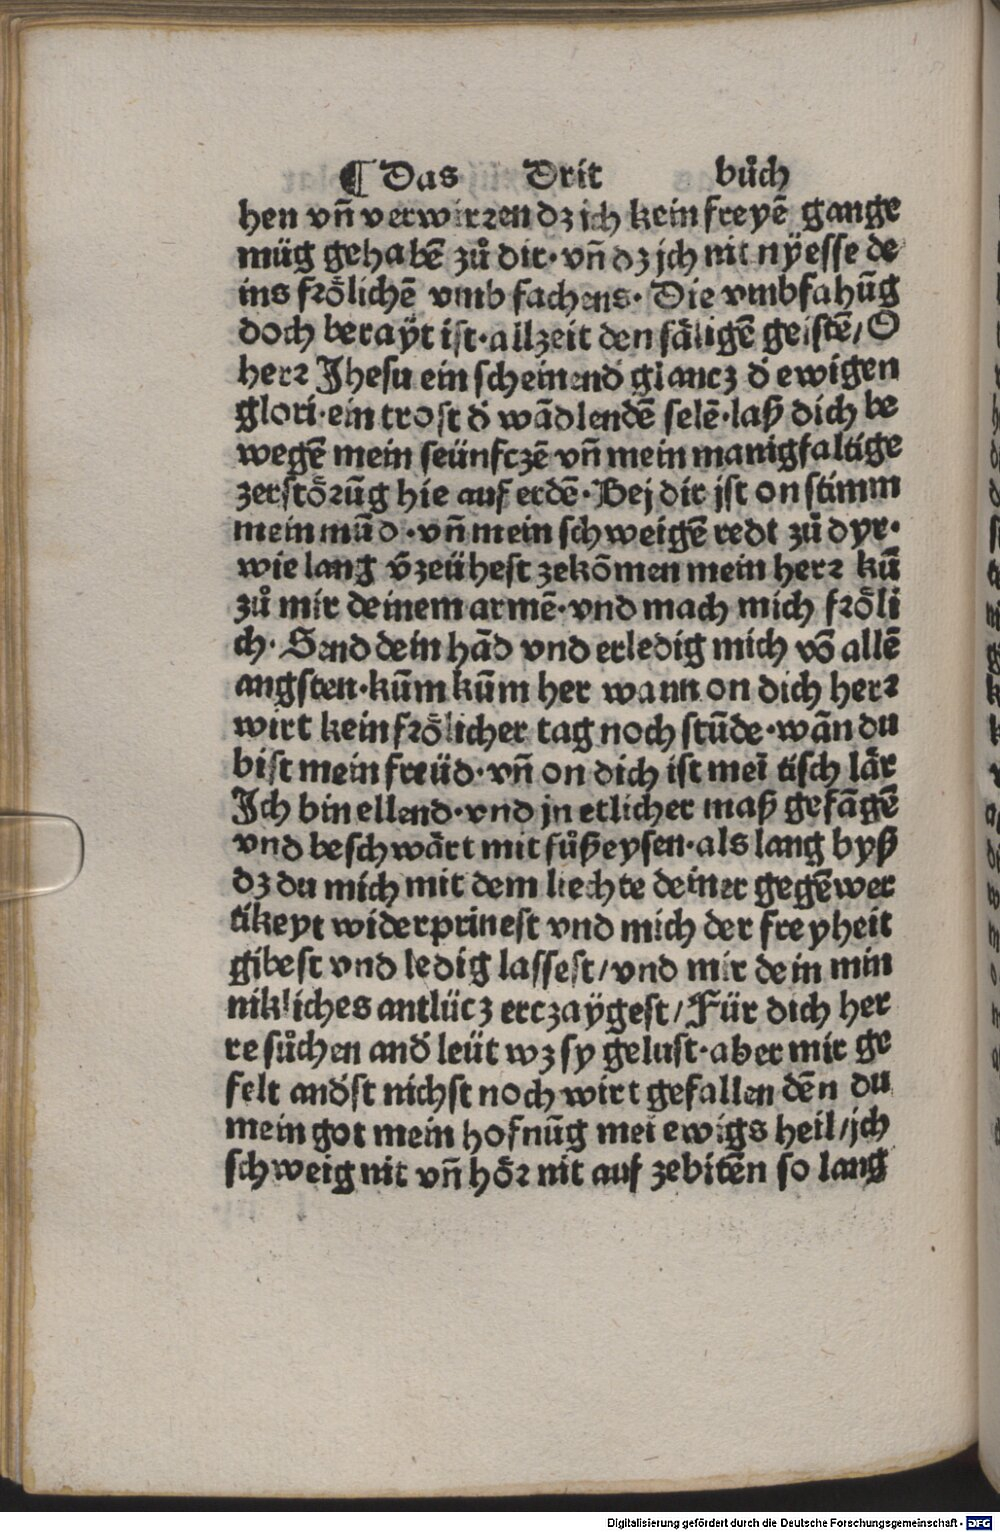 ¶ Das Drit bůch
hen vn̄ verwirꝛen dz ich kein freyē gange
müg gehabē zů dir· vn̄ dz jch nit nÿesse de
ins frölichē vmb fachens· Die vmbfahūg
doch berayt ist·allzeit den säligē geistē/ O
herꝛ Jhesu ein scheinend glancz d̓ ewigen
glori·ein trost d̓ wādlendē selē·laß dich be
wegē mein seünfczē vn̄ mein manigfaltige
zerstöꝛūg hie auf erdē· Bej dir jst on stimm
mein mūd·vn̄ mein schweigē redt zů dyr·
wie lang v̄zeühest zekōmen mein herꝛ kū
zů mir deinem armē·vnd mach mich fröli
ch· Send dein hād vnd erledig mich vō allē
angsten·kūm kūm her wann on dich herꝛ
wirt kein frölicher tag noch stūde·wān du
bist mein freüd·vn̄ on dich ist meī tisch lär
Jch bin ellend·vnd jn etlicher maß gefāgē
vnd beschwärt mit fůßeysen·als lang byß
dz du mich mit dem liechte deiner gegēwer
tikeyt widerprinest vnd mich der freyheit
gibest vnd ledig lassest/vnd mir dein min
nikliches antlücz erczaÿgest/ Für dich her
re sůchen and̓ leüt wz sy gelust·aber mir ge
felt and̓st nichst noch wirt gefallen dēn du
mein got mein hofnūg mei ewigs heil/jch
schweig nit vn̄ höꝛ nit auf zebitēn so lang
Digitalisierung gefördert durch die Deutsche Forschungsgemeinschaft - DFG